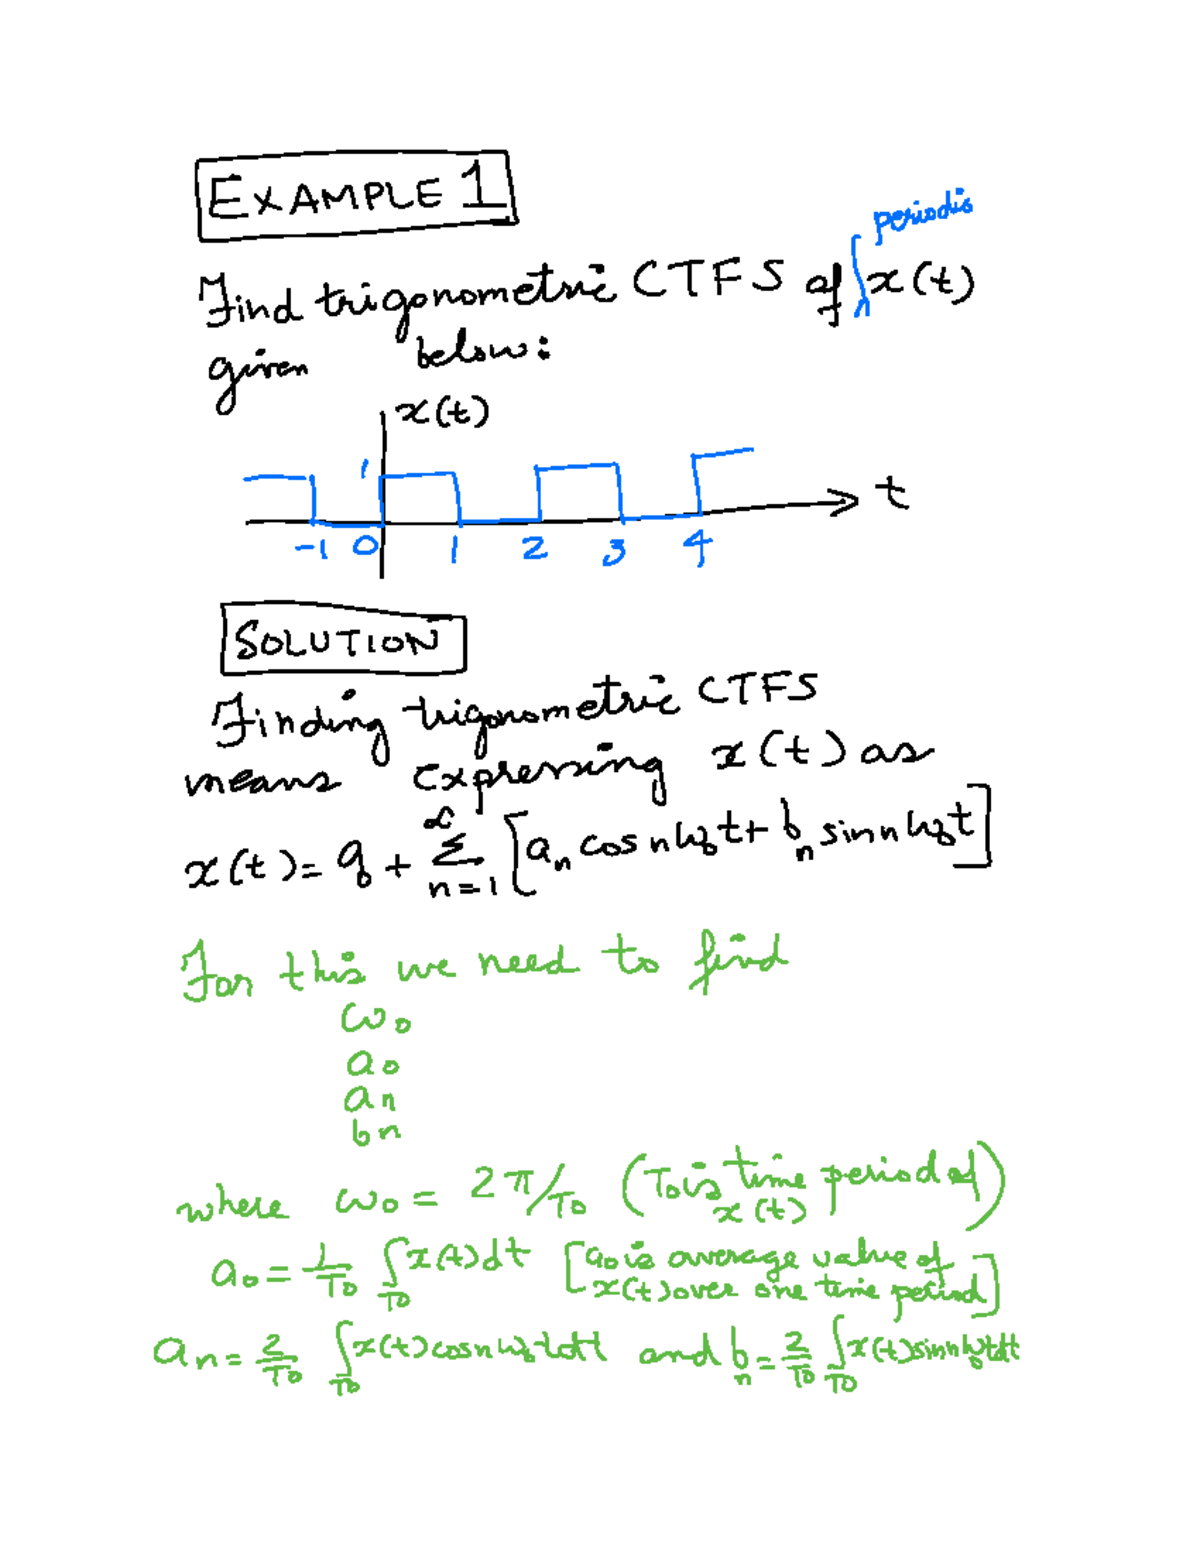 EXAMPLE 1
periodic
Find trigonometric CTFS of x(t)
given below:
x(t)
1
t
-1 0 1 2 3 4
SOLUTION
Finding trigonometric CTFS
means expressing x(t) as
x(t) = a₀ + ∞ Σ n=1 [aₙ cos nω₀t + bₙ sin nω₀t]
For this we need to find
ω₀
a₀
aₙ
bₙ
where ω₀ = 2π/T₀ (T₀ is time period of x(t))
a₀ = 1/T₀ ∫T₀ x(t)dt [a₀ is average value of x(t) over one time period]
aₙ = 2/T₀ ∫T₀ x(t) cos nω₀t dt and bₙ = 2/T₀ ∫T₀ x(t) sin nω₀t dt